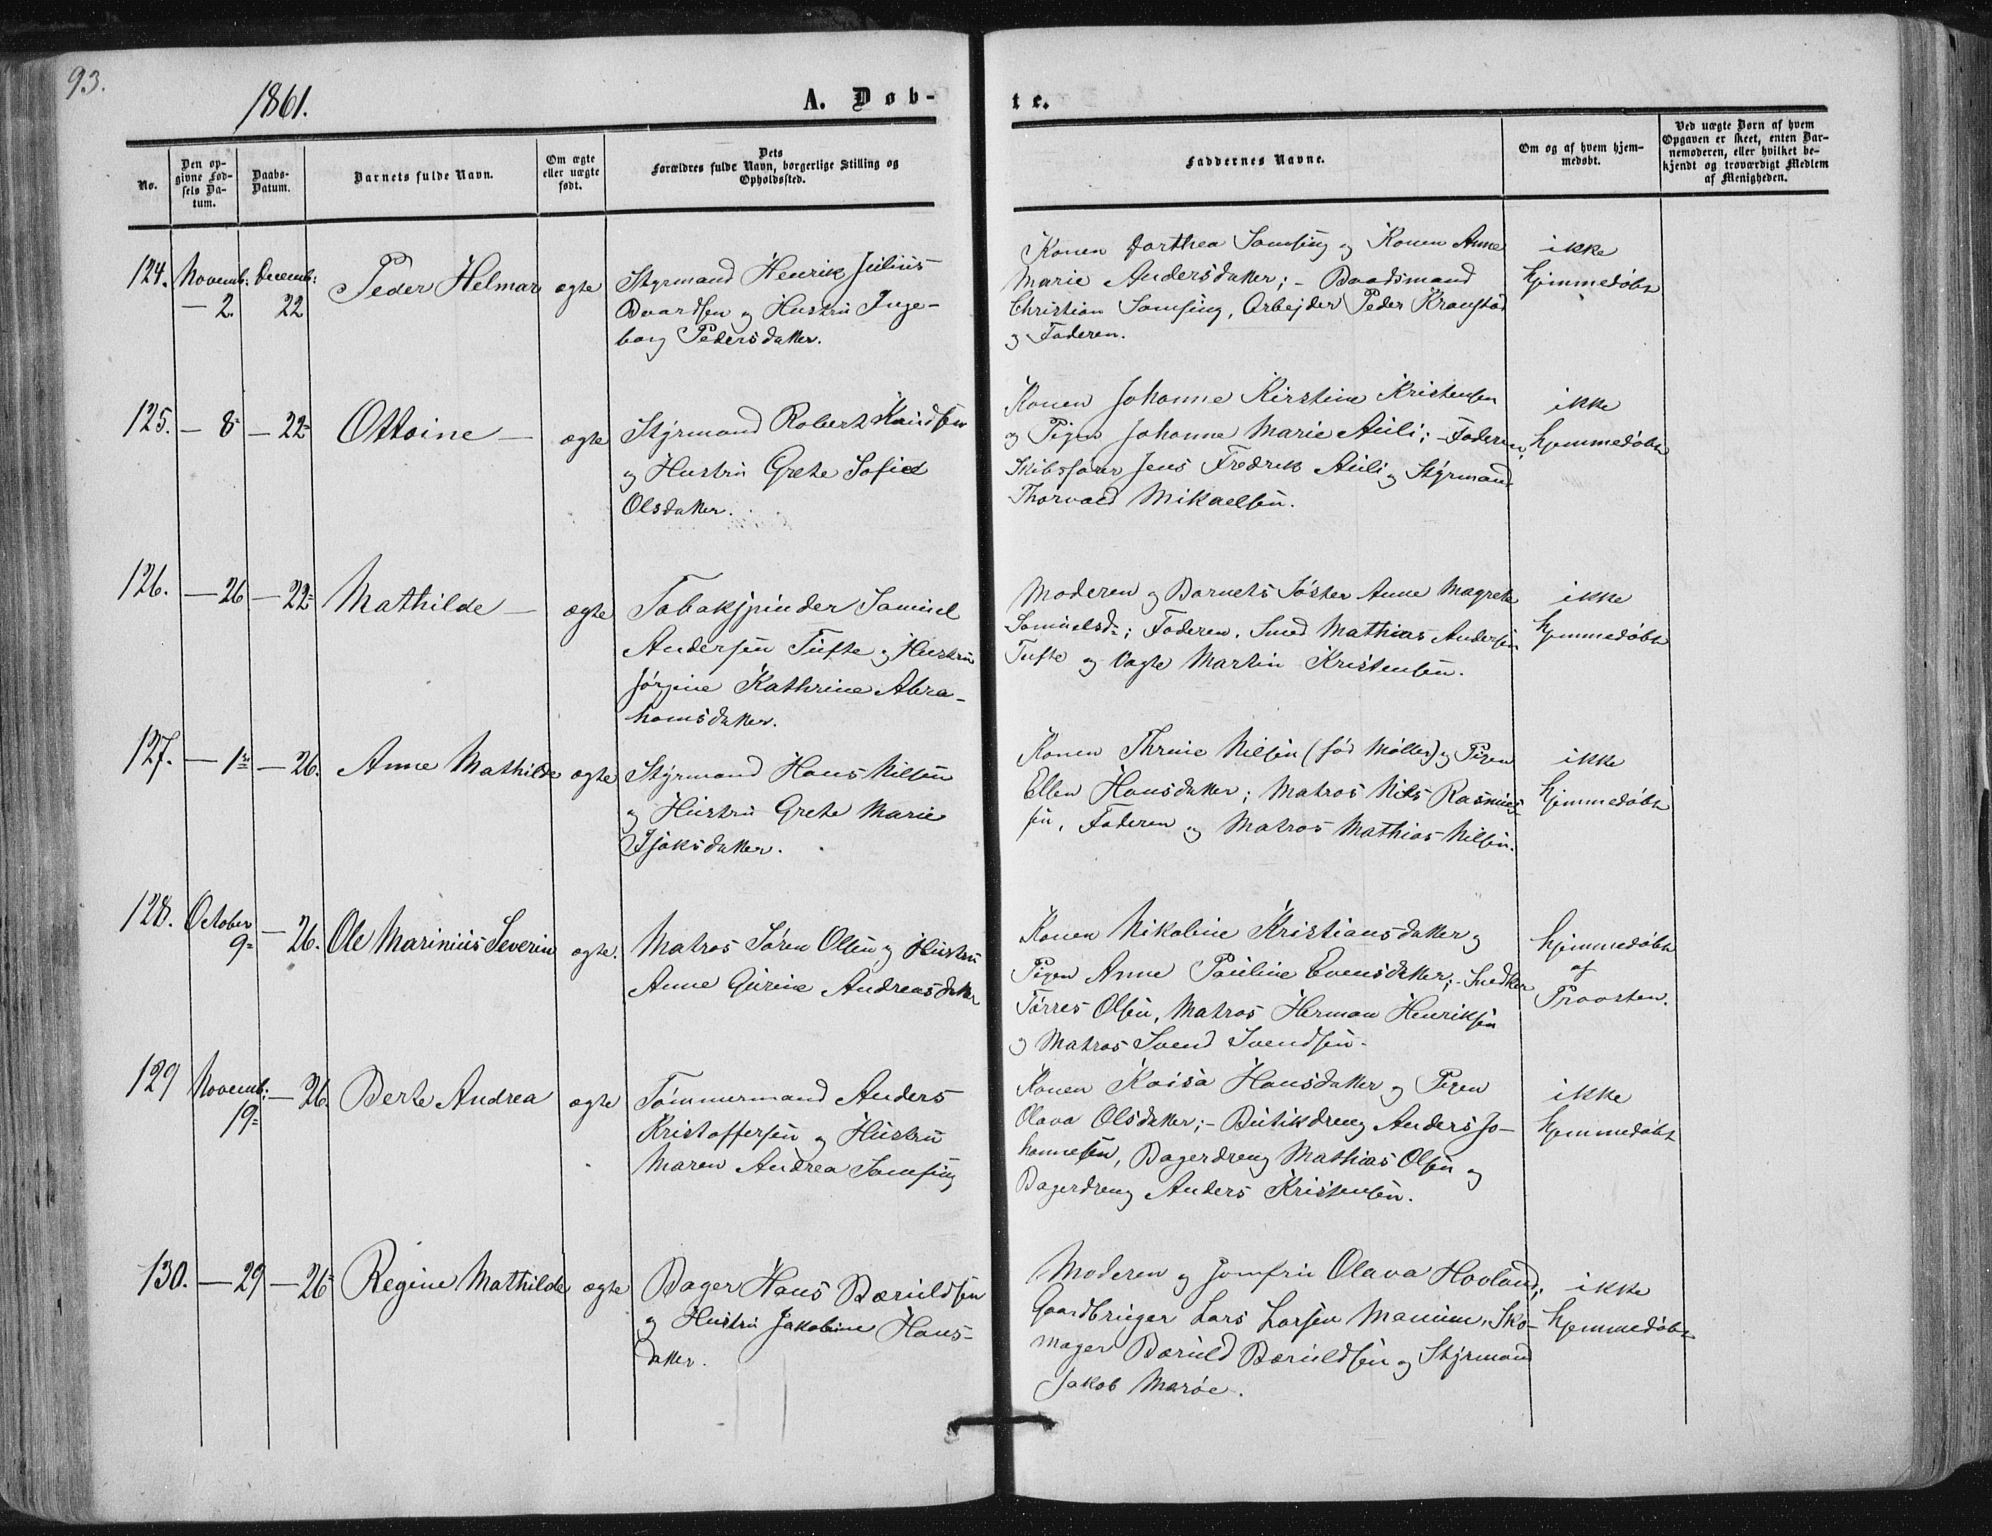 93.
1861.
A. Døb-
te.
No.
Den op-
givne Fød-
sels Da-
tum.
Daabs-
Datum.
Barnets fulde Navn.
Om ægte
eller uægte
født.
Dets
Forældres fulde Navn, borgerlige Stilling og
Opholdssted.
Faddernes Navne.
Om og af hvem hjem-
medøbt.
Ved uægte Børn af hvem
Opgaven er skeet, enten Bar-
nemoderen, eller hvilket be-
kjendt og troværdigt Medlem
af Menigheden.
124.
Novemb:
— 2.
Decemb:
22
Peder Helmar
ægte
Styrmand Henrik Julius
Baardsen og Hustru Inge-
borg Pedersdatter.
Konen Dorthea Samsing og Konen Anne
Marie Andersdatter; – Baadsmand
Christian Samsing, Arbejder Peder
og Faderen.
ikke
hjemmedøbt
125.
— 8
— 22
Ottoine —
ægte
Styrmand Robert Knudsen
og Hustru Grete Sofie
Olsdatter.
Konen Johanne Kirstine Kristensen
og Pigen Johanne Marie Auli; – Faderen,
Skibsfører Jens Fredrik Auli og Styrmand
Thorvald Mikaelsen.
ikke
hjemmedøbt
126.
— 26
— 22
Mathilde —
ægte
Tobakspinder Samuel
Andersen Tufte og Hustru
Jørgine Kathrine Abra-
hamsdatter.
Moderen og Barnets Søster Anne Magrete
Samuelsdr; Faderen, Smed Mathias Andersen
Tufte og Vagte Martin Kristensen.
ikke
hjemmedøbt
127.
— 1
— 26.
Anne Mathilde
ægte
Styrmand Hans Nilsen
og Hustru Grete Marie
Isaksdatter.
Konen Thrine Nilsen (fød Møller) og Pigen
Ellen Hansdatter; Matros Nils Rasmus-
sen, Faderen og Matros Mathias Nilsen.
ikke
hjemmedøbt
128.
October
9
— 26.
Ole Marinius Severin
ægte.
Matros Søren Olsen og Hustru
Anne Gurine Andreasdatter
Konen Nikoline Kristiansdatter og
Pigen Anne Pauline Evensdatter; – Snedker
Tørres Olsen, Matros Herman Henriksen
og Matros Svend Svendsen.
hjemmedøbt
af
Provsten.
129
Novemb:
19
— 26.
Berte Andrea
ægte
Tømmermand Anders
Kristoffersen og Hustru
Maren Andrea Samsing
Konen Kaisa Hansdatter og Pigen
Olava Olsdatter; – Butikdreng Anders Jo-
hannesen, Bagerdreng Mathias Olsen og
Bagerdreng Anders Kristensen.
ikke
hjemmedøbt
130.
— 29
— 26
Regine Mathilde
ægte
Bager Hans Bæruldsen
og Hustru Jakobine Hans-
datter.
Moderen og Jomfru Olava Hovland;
Gaardbruger Lars Larsen Manum, Sko-
mager Bæruld Bæruldsen og Styrmand
Jakob Marøe.
ikke
hjemmedøbt